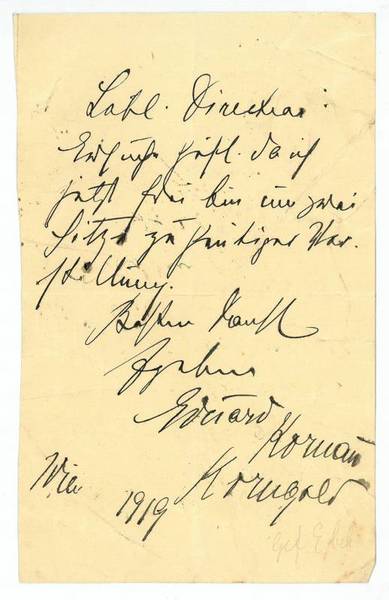 Löbl. Direction!
Ersuche höfl. da ich
jetzt frei bin um zwei
Sitze zu heutiger Vor-
stellung.
Besten Dank
Ergebenst
Eduard
Kornau
Korngold
Wien 1919